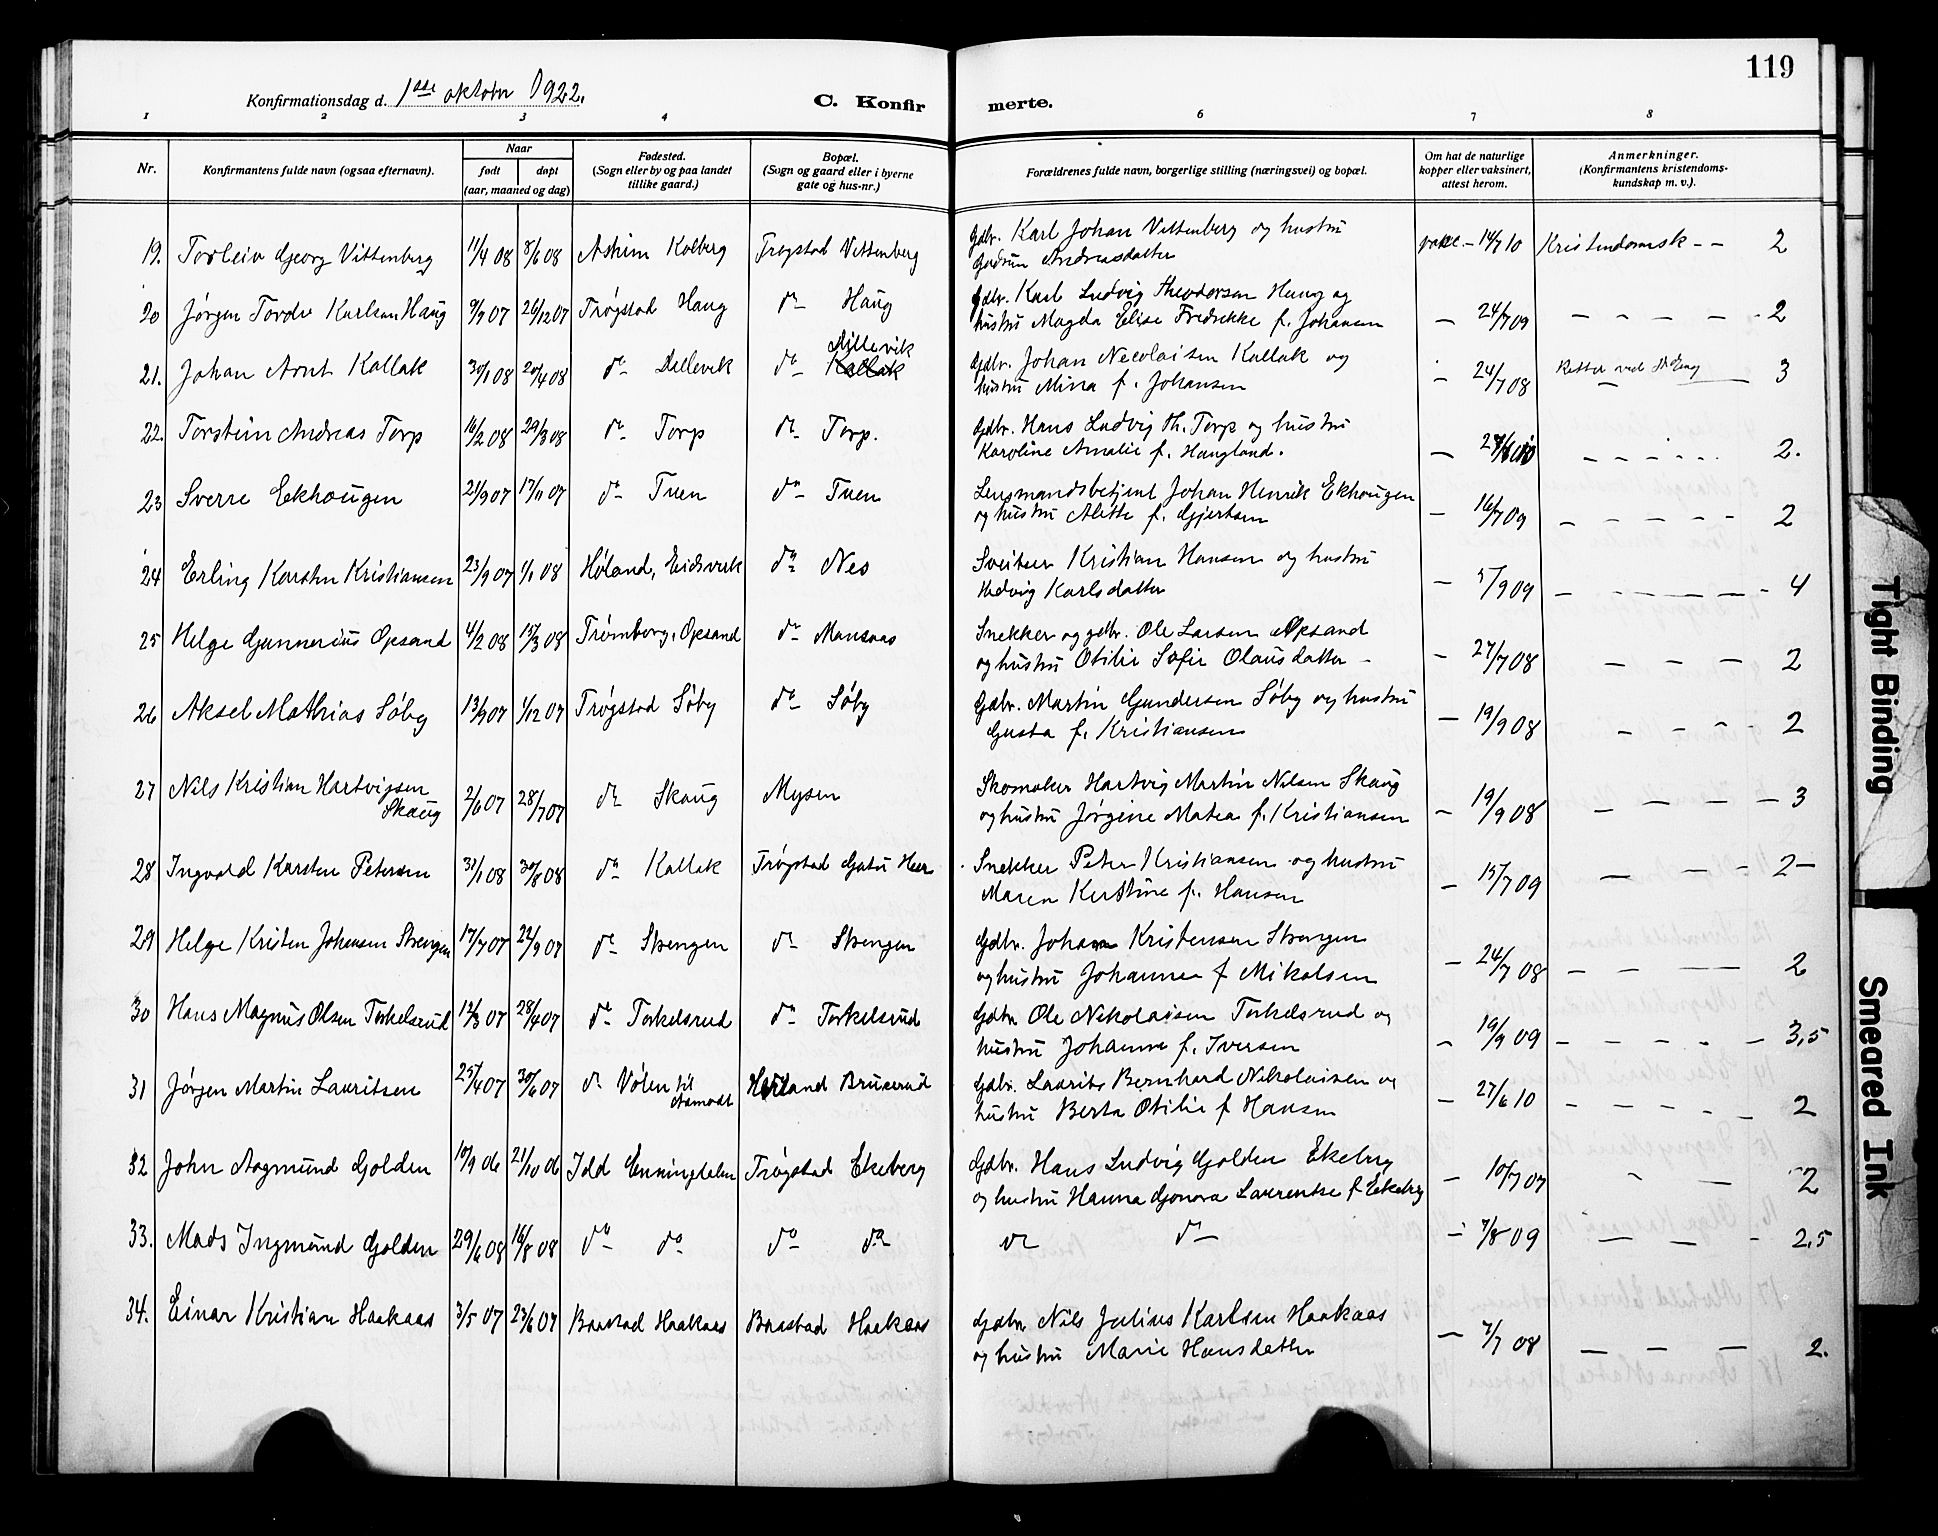 119
Konfirmationsdag d. 1ste oktober 1922.
C. Konfirmerte.
1 2 3 4 6 7 8
Nr. Konfirmantens fulde navn (ogsaa efternavn). Naar født døpt (aar, maaned og dag) Fødested. (Sogn eller by og paa landet tillike gaard.) Bopæl. (Sogn og gaard eller i byerne gate og hus-nr.) Forældrenes fulde navn, borgerlige stilling (næringsvei) og bopæl. Om hat de naturlige kopper eller vaksinert, attest herom. Anmerkninger. (Konfirmantens kristendoms-kundskap m. v.).
19. Torleiv Georg Vittenberg 11/4 08 8/6 08 Askim Kolberg Trøgstad Vittenberg Gdbr. Karl Johan Vittenberg og hustru vakc. – 14/7 10 Kristendomsk – – 2
Gudrun Andreasdatter
20 Jørgen Tordu Karlsen Haug 9/9 07 26/12 07 Trøgstad Haug do Haug Gdbr. Karl Ludvig Theodorsen Haug og
hustru Magda Elise Fredrikke f. Johansen – 24/7 09 – – – – - 2
21. Johan Arnt Kallak 30/1 08 20/4 08 do Dillevik do Kallak Dillevik Gdbr. Johan Necolaisen Kallak og
hustru Mina f. Johansen – 24/7 08 3
22. Torstein Andreas Torp 16/2 08 29/3 08 do Torp do Torp. Gdbr. Hans Ludvig Th. Torp og hustru
Karoline Amalie f. Haugland. – 2.
23 Sverre Ekhougen 21/9 07 17/11 07 do Tuen do Tuen Lensmandsbetjent Johan Henrik Ekhougen
og hustru Alette f. Gjertsen – 16/7 09 – – – – - 2
24 Erling Karsten Kristiansen 23/9 07 1/1 08 Høland, Eidsverk do Nes Sveitser Kristian Hansen og hustru
Hedvig Karlsdatter – 5/9 09 – - – – – - 4
25 Helge Gunnerius Opsand 4/2 08 15/3 08 Trømborg, Opsand do Mansaas Snekker og gdbr. Ole Larsen Opsand
og hustru Otilie Sofie Olausdatter – – 27/7 08 – – – 2
26 Aksel Mathias Søby 13/9 07 1/12 07 Trøgstad Søby do Søby Gdbr. Martin Gundersen Søby og hustru
Gusta f. Kristiansen – 19/9 08 – - - - 2
27 Nils Kristian Hartvigsen Skaug 2/6 07 28/7 07 do Skaug Mysen Skomaker Hartvig Martin Nilsen Skaug
og hustru Jørgine Matea f. Kristiansen – 19/9 08 – – – – 3
28 Ingvald Karsten Petersen 31/1 08 30/8 08 do Kallak Trøgstad Gatu Heer Snekker Peter Kristiansen og hustru
Maren Kirstine f. Hansen – 15/7 09 – – - 2 –
29 Helge Kristen Johansen Strengen 17/7 07 22/9 07 do Strengen do Strengen Gdbr. Johan Kristensen Strengen
og hustru Johanne f Mikalsen – 24/7 08 – – – – 2
30 Hans Magnus Olsen Torkelsrud 12/3 07 28/4 07 do Torkelsrud do Torkelsrud Gdbr. Ole Nikolaisen Torkelsrud og
hustru Johanne f. Iversen – 19/9 09 – – – . – – 3,5
31 Jørgen Martin Lauritsen 25/4 07 30/6 07 do Volen til Aamodt Brucerud Gdbr. Laurits Bernhard Nikolaisen og
hustru Berta Otilie f Hansen – 27/6 10 – – – - – 2
32 John Aagmund Golden 10/9 06 21/10 06 Idd Enningdalen Trøgstad Ekeberg Gdbr. Hans Ludvig Golden Ekeberg
og hustru Hanna Gonora Laurentse f Ekeberg – 10/7 07 - – - 2
33. Mads Ingmund Golden 29/6 08 16/8 08 do do do do do do – 7/8 09 – – - 2,5
34. Einar Kristian Haakaas 3/5 07 23/6 07 Baastad Haakaas Baastad Haakaas Gdbr. Nils Julius Karlsen Haakaas
og hustru Marie Hansdatter – 7/7 08 – – – 2.
Tight Binding
Smeared Ink